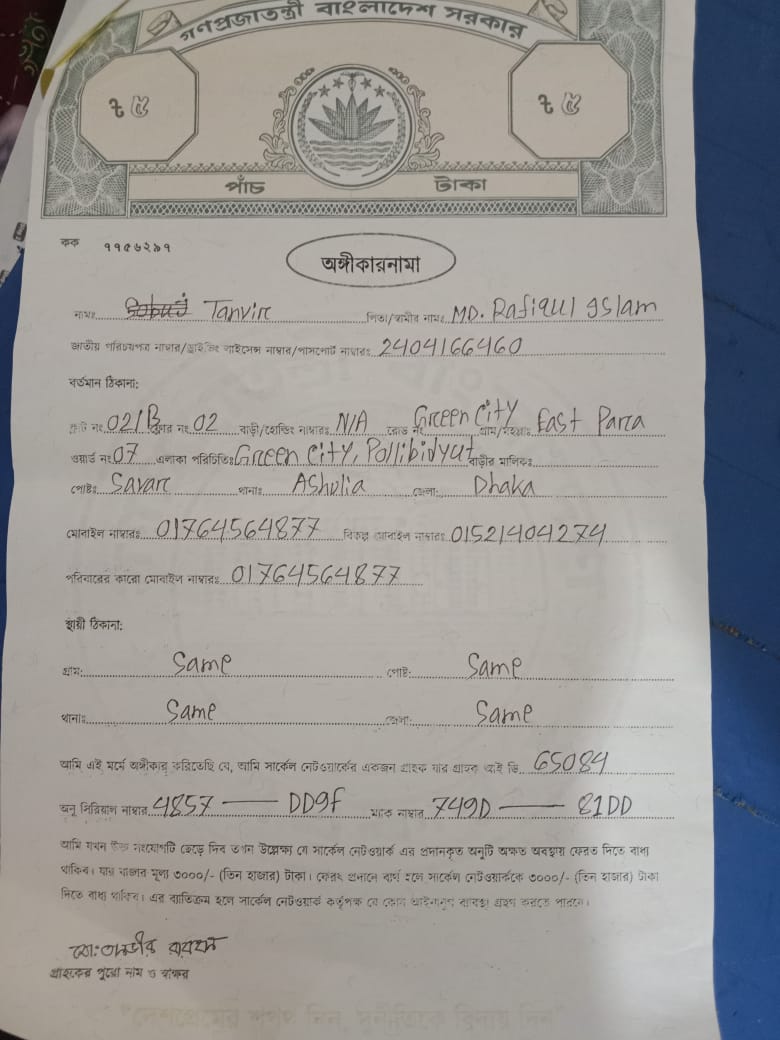 গণপ্রজাতন্ত্রী বাংলাদেশ সরকার
৳ ৫ ৳ ৫
পাঁচ টাকা
কক ৭৭৫৬২৯৭
অঙ্গীকারনামা
নামঃ Tanvir পিতা/স্বামীর নামঃ MD. Rafiqul Islam
জাতীয় পরিচয়পত্র নাম্বার/ড্রাইভিং লাইসেন্স নাম্বার/পাসপোর্ট নাম্বারঃ 2404166460
বর্তমান ঠিকানা:
ফ্লাট নং 02/B ফ্লোর নং 02 বাড়ী/হোল্ডিং নাম্বারঃ N/A রোড নং Green City গ্রাম/মহল্লাঃ East Para
ওয়ার্ড নং 07 এলাকা পরিচিতিঃ Green City, Pollibidyut বাড়ীর মালিকঃ
পোষ্টঃ Savar থানাঃ Ashulia জেলা: Dhaka
মোবাইল নাম্বারঃ 01764564877 বিকল্প মোবাইল নাম্বারঃ 01521404274
পরিবারের কারো মোবাইল নাম্বারঃ 01764564877
স্থায়ী ঠিকানা:
গ্রাম: Same পোষ্ট: Same
থানাঃ Same জেলা: Same
আমি এই মর্মে অঙ্গীকার করিতেছি যে, আমি সার্কেল নেটওয়ার্কের একজন গ্রাহক যার গ্রাহক আই ডি 65084
অনু সিরিয়াল নাম্বার 4857 — DD9f ম্যাক নাম্বার 749D — 81DD
আমি যখন উক্ত সংযোগটি ছেড়ে দিব তখন উল্লেখ্য যে সার্কেল নেটওয়ার্ক এর প্রদানকৃত অনুটি অক্ষত অবস্থায় ফেরত দিতে বাধ্য
থাকিব। যার বাজার মূল্য ৩০০০/- (তিন হাজার) টাকা। ফেরৎ প্রদানে ব্যর্থ হলে সার্কেল নেটওয়ার্ককে ৩০০০/- (তিন হাজার) টাকা
দিতে বাধ্য থাকিব। এর ব্যতিক্রম হলে সার্কেল নেটওয়ার্ক কর্তৃপক্ষ যে কোন আইনানুগ ব্যবস্থা গ্রহণ করতে পারবে।
মো: তানভীর
গ্রাহকের পুরো নাম ও স্বাক্ষর
"দেশপ্রেমের শপথ নিন, দুর্নীতিকে বিদায় দিন"